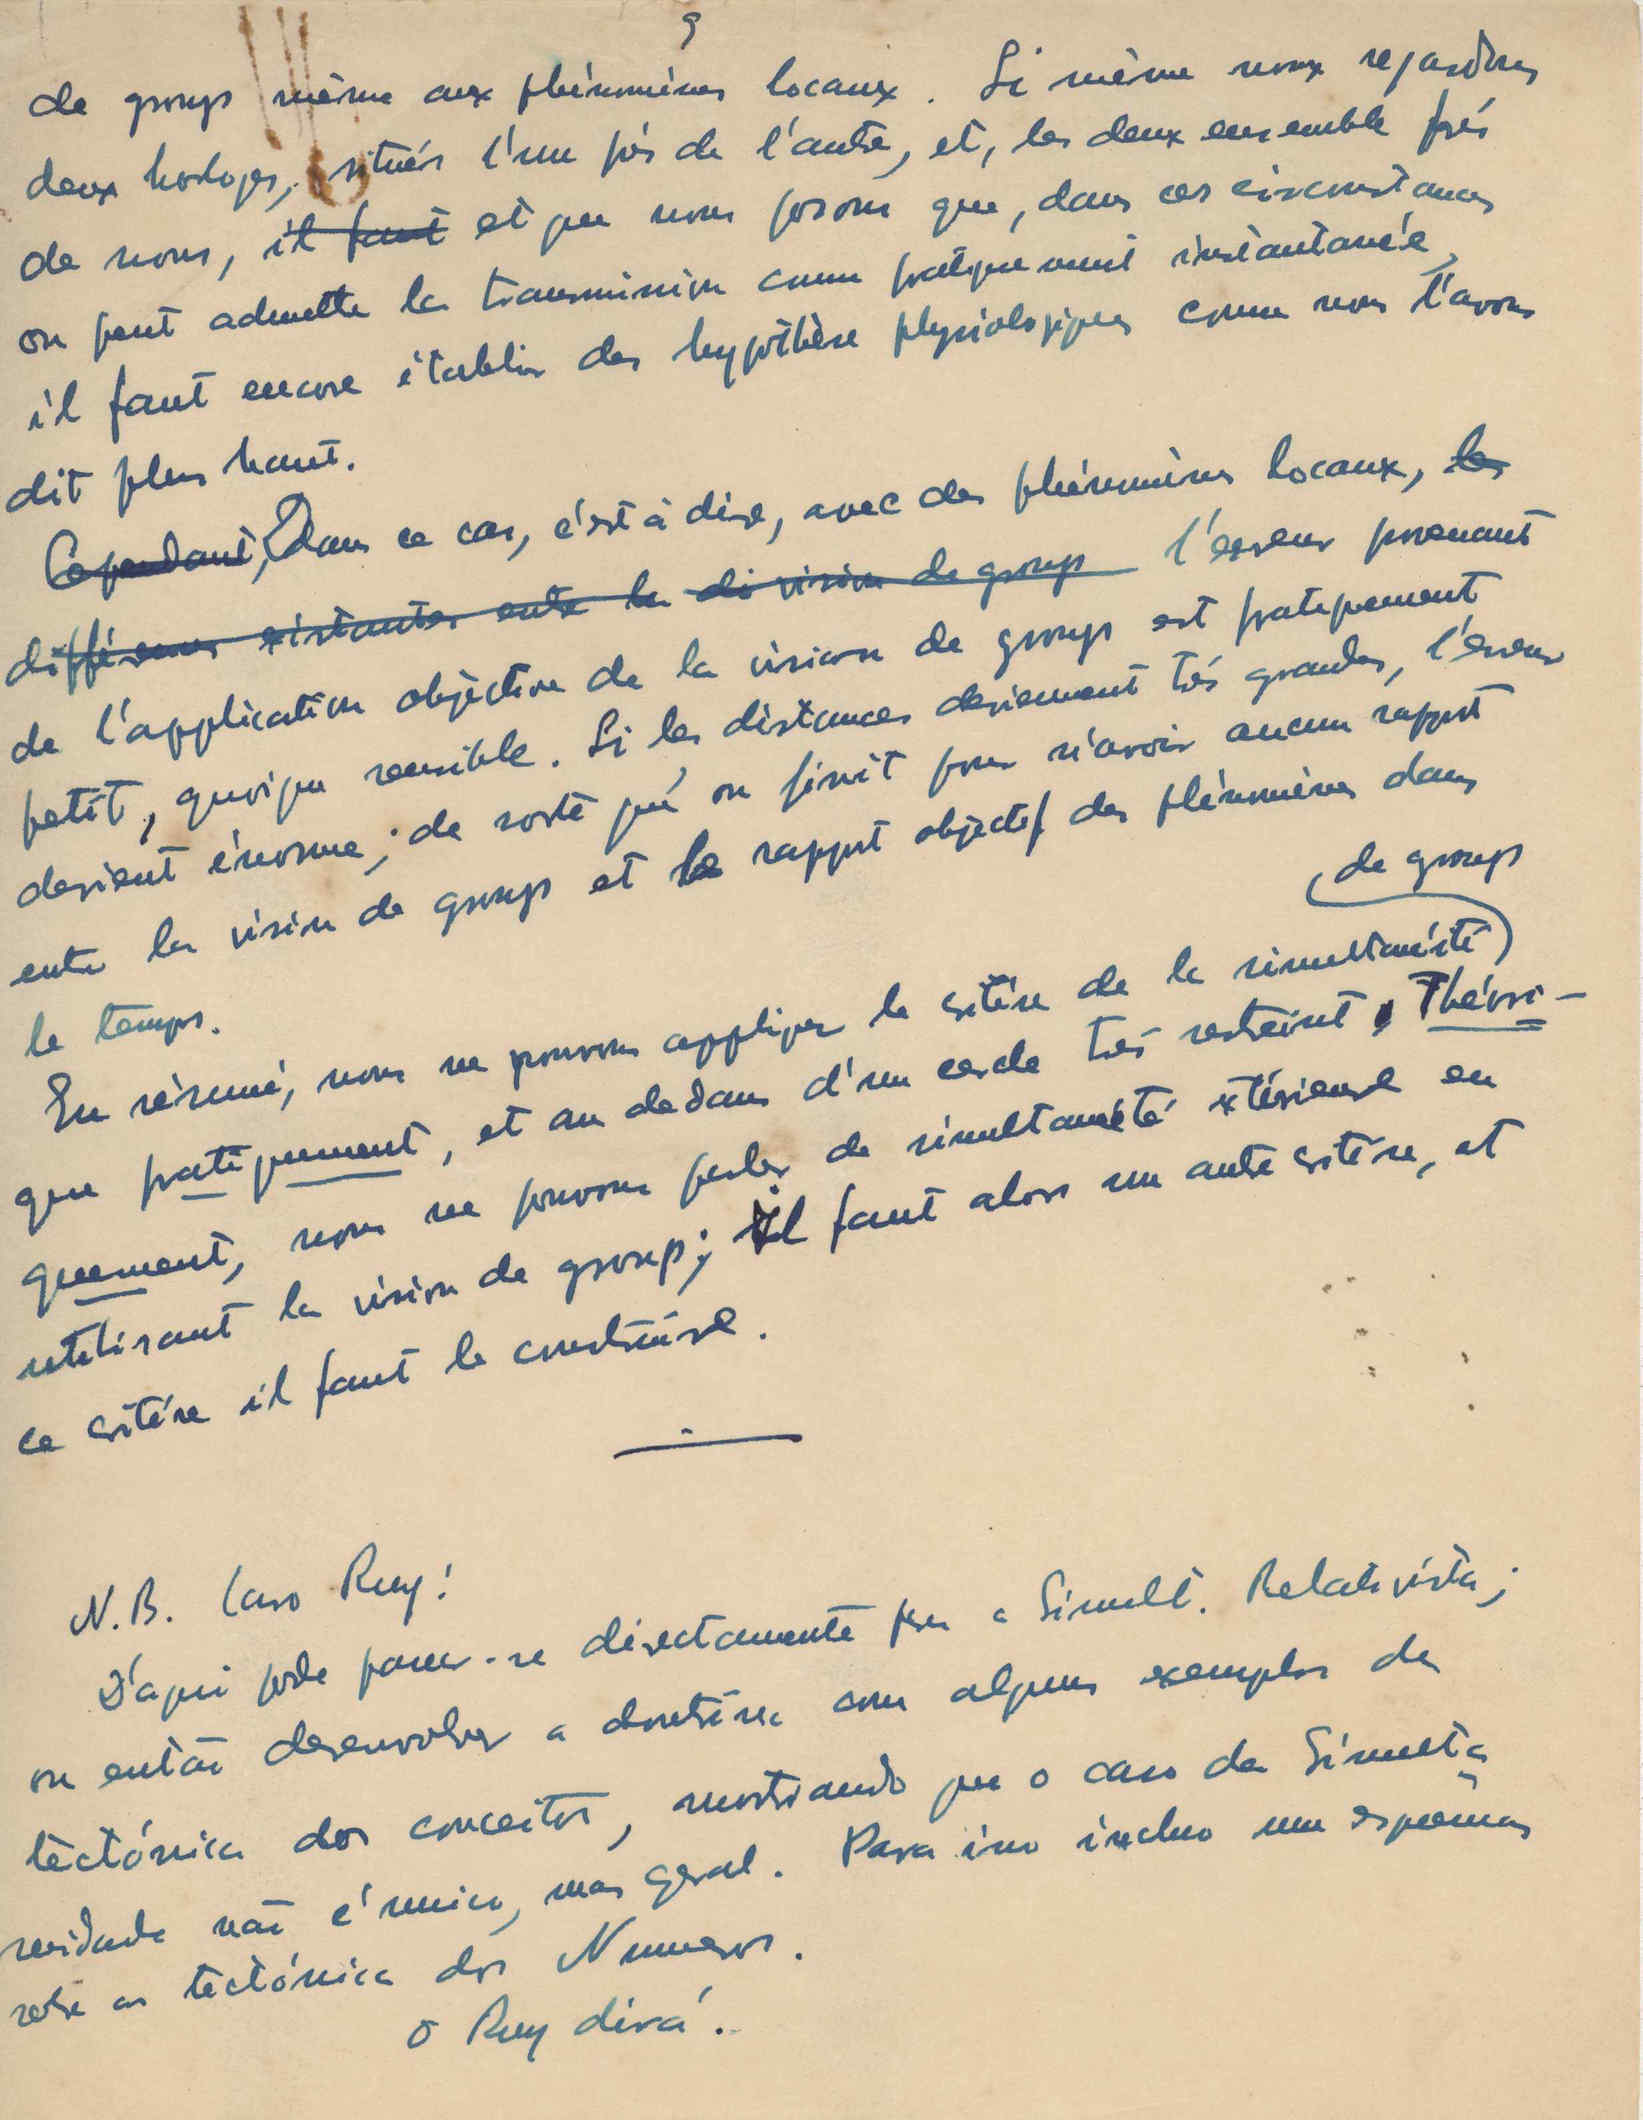 9
de group même aux phénomènes locaux. Si même nous regardons
deux horloges, situés l'un près de l'autre, et, les deux ensemble près
de nous, il faut et que nous posons que, dans ces circonstances
on peut admettre la transmission comme pratiquement instantanée,
il faut encore établir des hypothèse physiologiques comme nous l'avons
dit plus haut.
Cependant, Dans ce cas, c'est à dire, avec des phénomènes locaux, les
différences existantes entre la division de group l'erreur provenant
de l'application objective de la vision de group est pratiquement
petit, quoique sensible. Si les distances deviennent très grandes, l'erreur
devient énorme; de sorte qu'on finit pour n'avoir aucun rapport
entre la vision de group et le rapport objectif des phénomènes dans
le temps.
de group
En résumé, nous ne pouvons appliquer le critère de la simultanéité
que pratiquement, et au dedans d'un cercle très restreint. Théori-
quement, nous ne pouvons parler de simultanéité extérieure en
utilisant la vision de group; il faut alors un autre critère, et
ce critère il faut le construire.
N.B. Caro Ruy!
D'aqui pode passar-se directamente para a Simult. Relativista;
ou então desenvolver a doutrina com alguns exemplos da
tectónica dos conceitos, mostrando que o caso da Simulta
neidade não é unico, mas geral. Para isso incluo um esquema
sobre a tectónica dos Numeros.
O Ruy dirá.